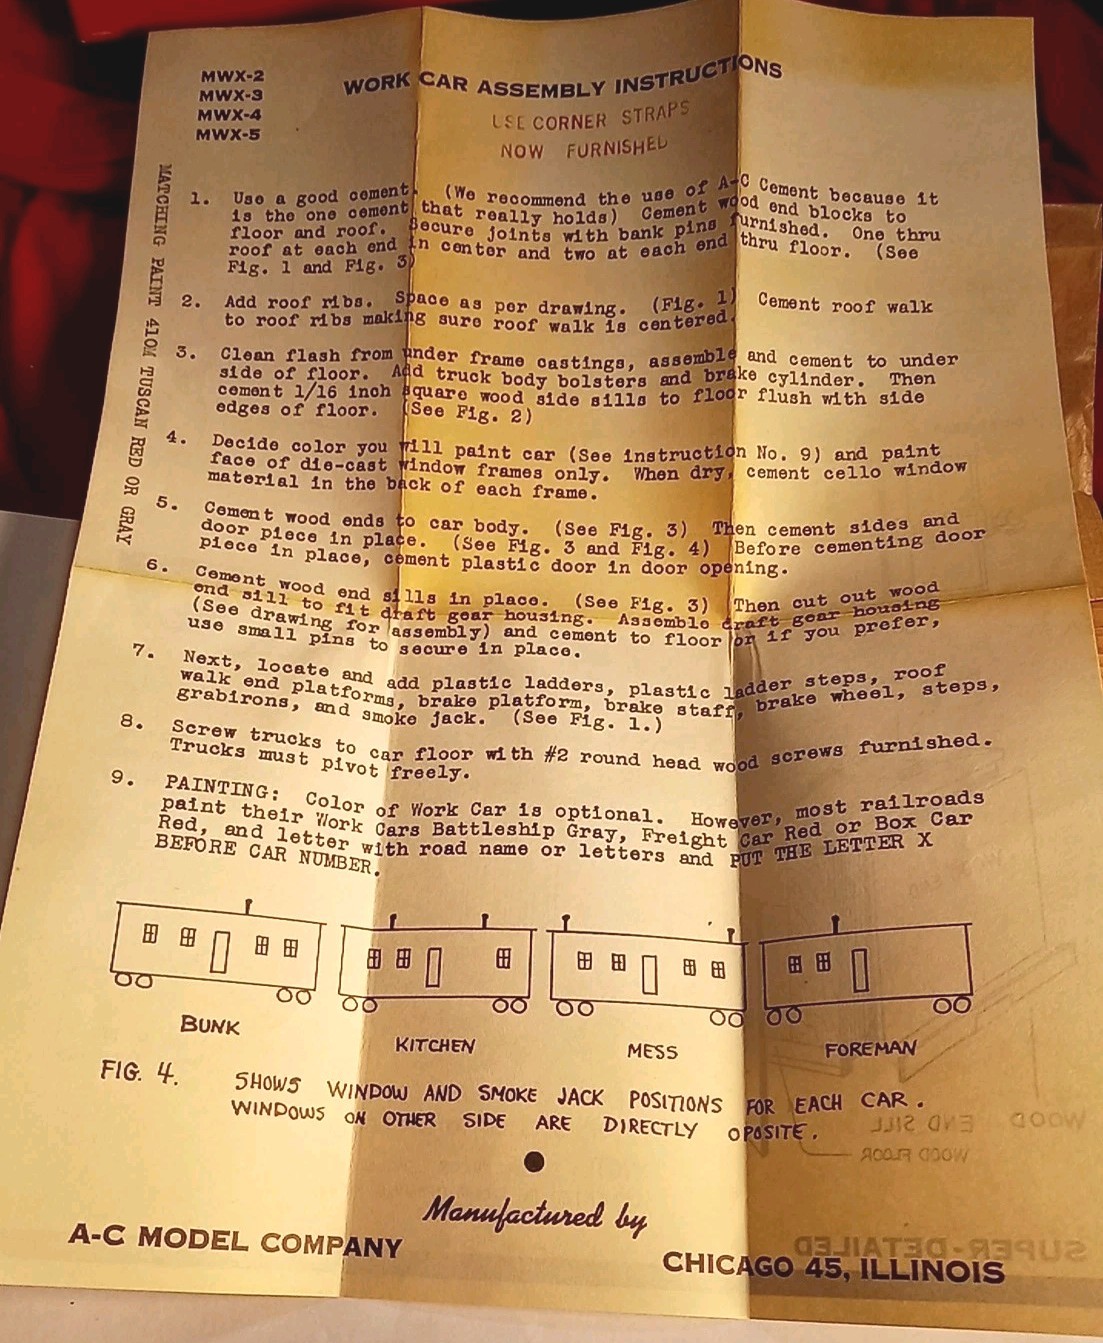 MWX-2
MWX-3
MWX-4
MWX-5
WORK CAR ASSEMBLY INSTRUCTIONS
USE CORNER STRAPS
NOW FURNISHED
MATCHING PAINT 410M TUSCAN RED OR GRAY
1. Use a good cement. (We recommend the use of A-C Cement because it
is the one cement that really holds) Cement wood end blocks to
floor and roof. Secure joints with bank pins furnished. One thru
roof at each end in center and two at each end thru floor. (See
Fig. 1 and Fig. 3)
2. Add roof ribs. Space as per drawing. (Fig. 1) Cement roof walk
to roof ribs making sure roof walk is centered.
3. Clean flash from under frame castings, assemble and cement to under
side of floor. Add truck body bolsters and brake cylinder. Then
cement 1/16 inch square wood side sills to floor flush with side
edges of floor. (See Fig. 2)
4. Decide color you will paint car (See instruction No. 9) and paint
face of die-cast window frames only. When dry, cement cello window
material in the back of each frame.
5. Cement wood ends to car body. (See Fig. 3) Then cement sides and
door piece in place. (See Fig. 3 and Fig. 4) Before cementing door
piece in place, cement plastic door in door opening.
6. Cement wood end sills in place. (See Fig. 3) Then cut out wood
end sill to fit draft gear housing. Assemble draft gear housing
(See drawing for assembly) and cement to floor or if you prefer,
use small pins to secure in place.
7. Next, locate and add plastic ladders, plastic ladder steps, roof
walk end platforms, brake platform, brake staff, brake wheel, steps,
grabirons, and smoke jack. (See Fig. 1.)
8. Screw trucks to car floor with #2 round head wood screws furnished.
Trucks must pivot freely.
9. PAINTING: Color of Work Car is optional. However, most railroads
paint their Work Cars Battleship Gray, Freight Car Red or Box Car
Red, and letter with road name or letters and PUT THE LETTER X
BEFORE CAR NUMBER.
BUNK
KITCHEN
MESS
FOREMAN
FIG. 4. SHOWS WINDOW AND SMOKE JACK POSITIONS FOR EACH CAR.
WINDOWS ON OTHER SIDE ARE DIRECTLY OPOSITE.
WOOD END SILL
WOOD FLOOR
Manufactured by
SUPER-DETAILED
A-C MODEL COMPANY
CHICAGO 45, ILLINOIS